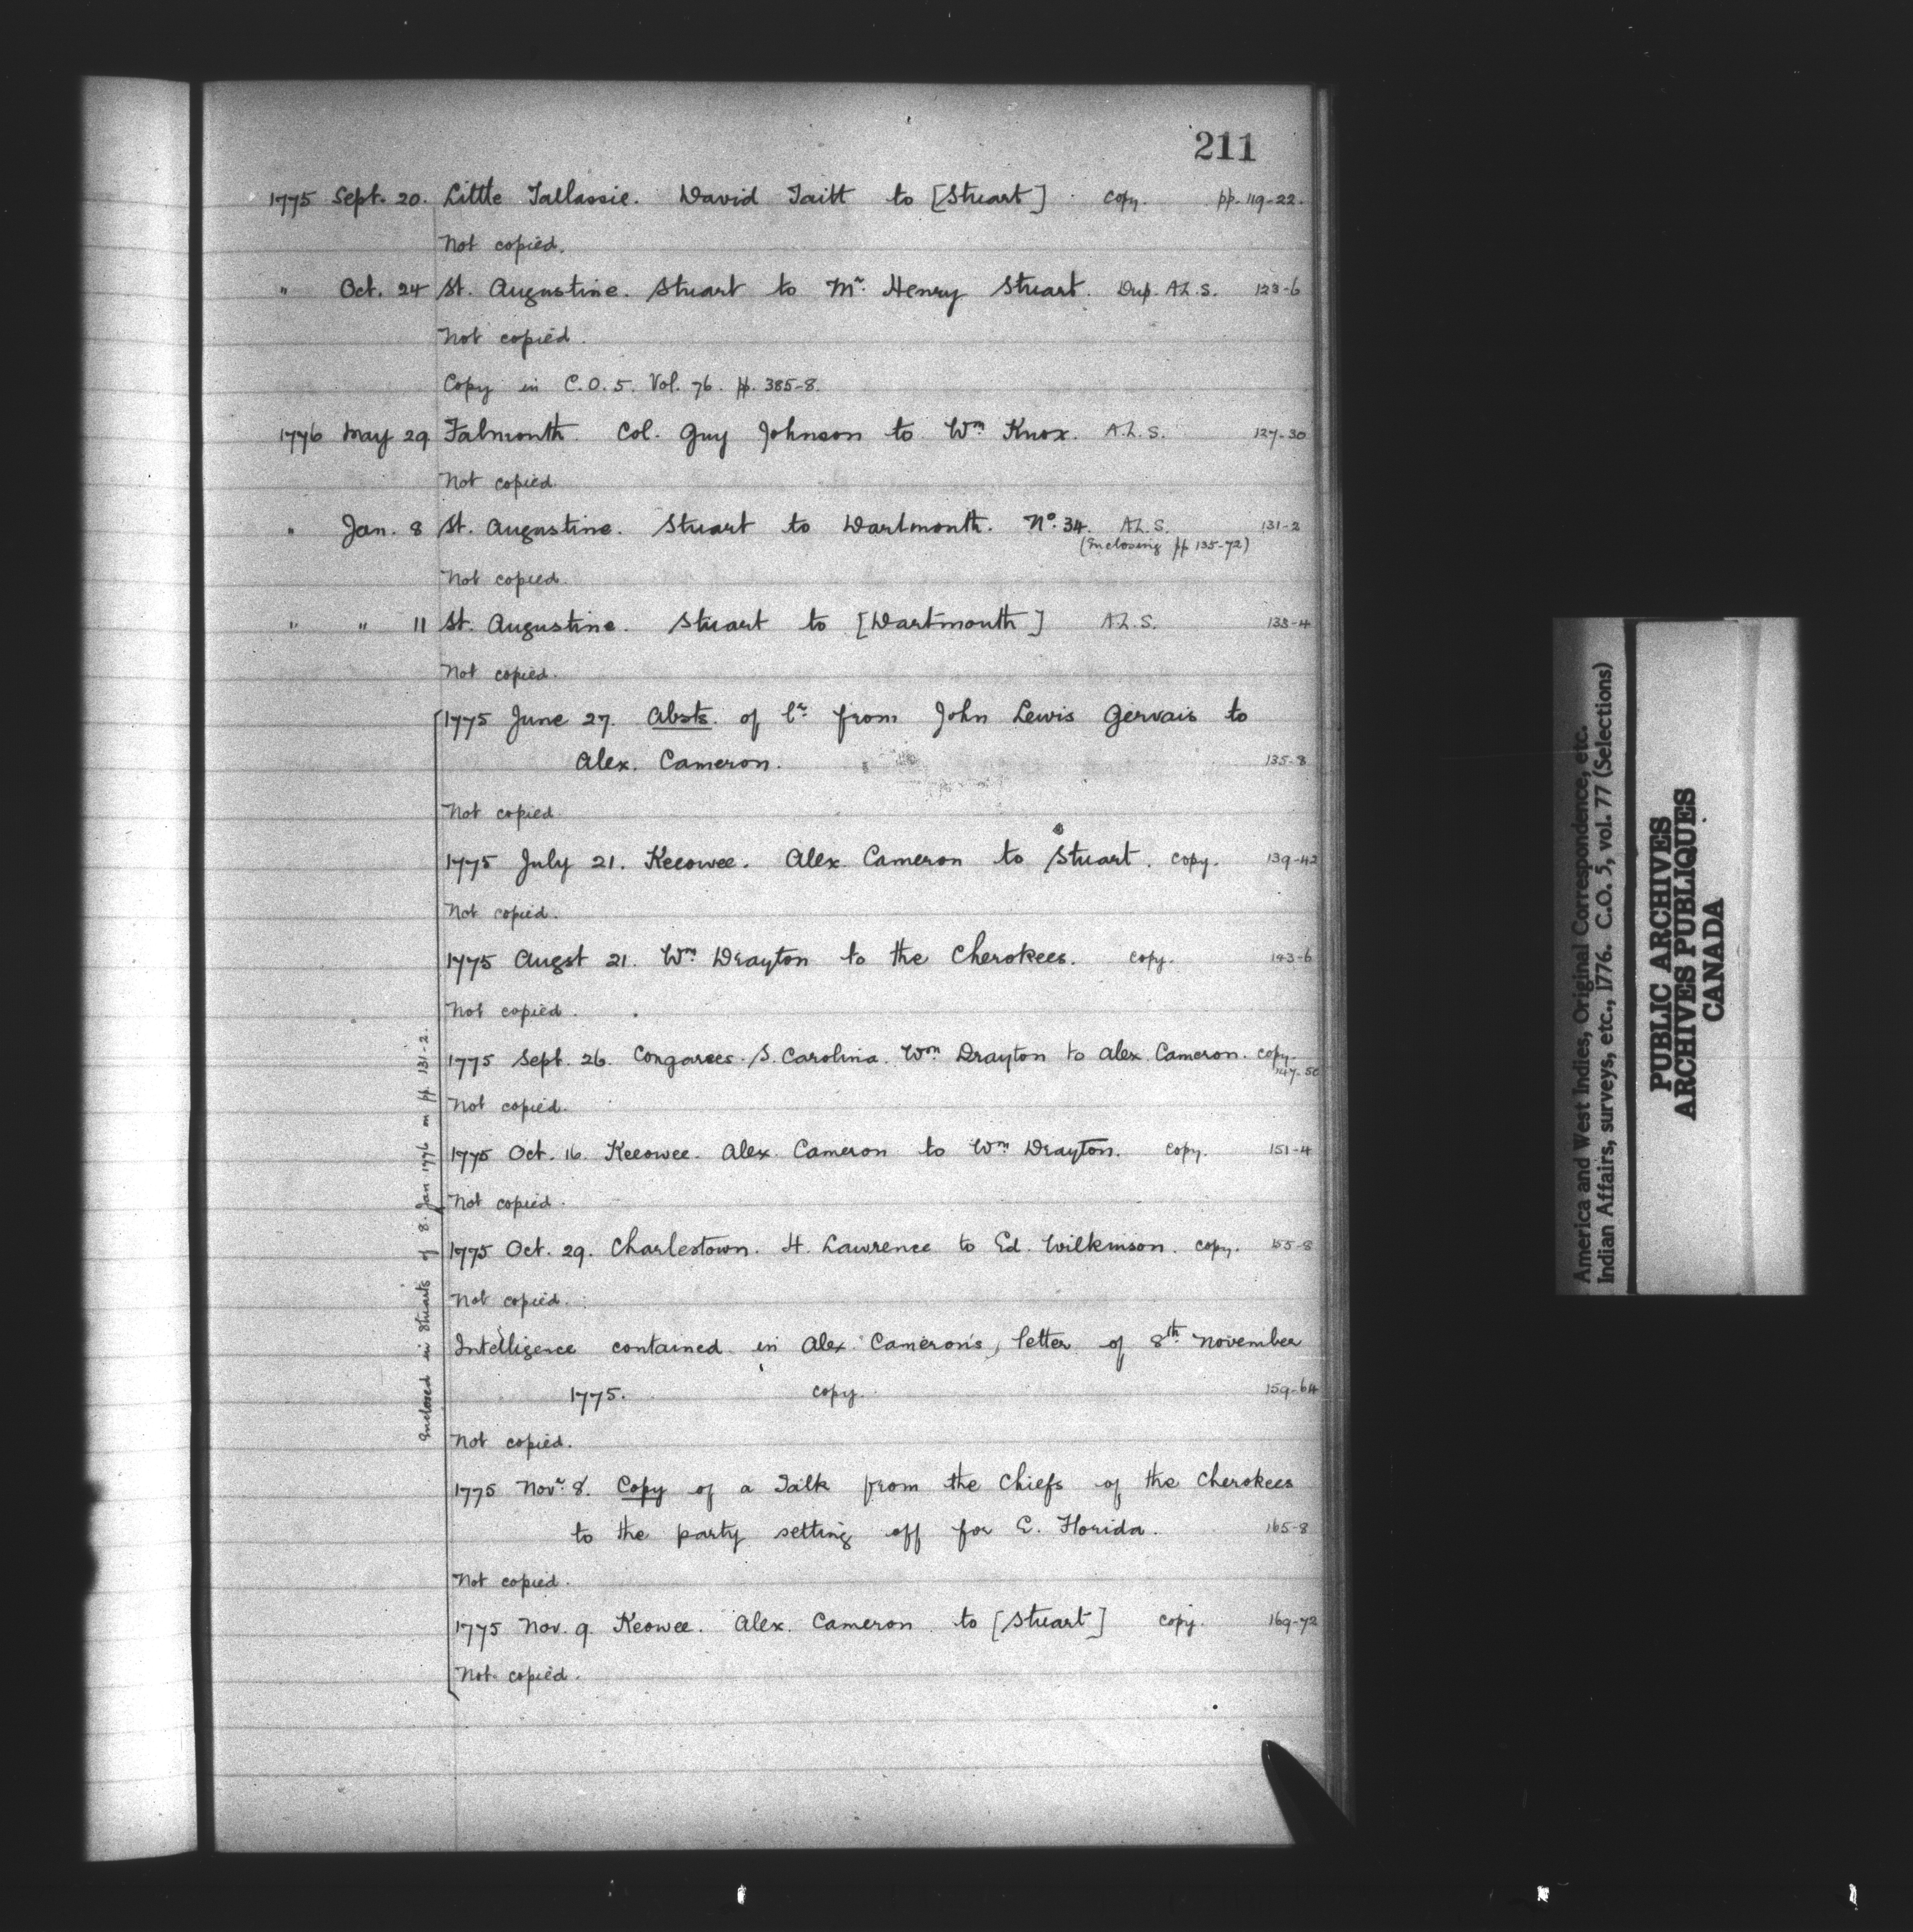 211
1775 Sept. 20. Little Tallassie. David Taitt to [Stuart] copy. pp. 119-22.
Not copied.
" Oct. 24 St. Augustine. Stuart to Mr. Henry Stuart. Dup. A.L.S. 123-6
Not copied.
Copy in C.O. 5. Vol. 76. pp. 385-8.
1776 May 29 Falmouth. Col. Guy Johnson to Wm Knox. A.L.S. 127-30
Not copied.
" Jan. 8 St. Augustine. Stuart to Dartmouth. No. 34. A.L.S. 131-2
(Enclosing pp 135-72)
Not copied.
" " 11 St. Augustine. Stuart to [Dartmouth] A.L.S. 133-4
Not copied.
1775 June 27. Absts. of lr. from John Lewis Gervais to
Alex. Cameron. 135-8
Not copied.
1775 July 21. Keeowee. Alex. Cameron to Stuart. copy. 139-42
Not copied.
1775 Augst 21. Wm Drayton to the Cherokees. copy. 143-6
Not copied.
1775 Sept. 26. Congarees. S. Carolina. Wm Drayton to Alex. Cameron. copy.
147-50
Not copied.
1775 Oct. 16. Keeowee. Alex. Cameron to Wm Drayton. copy. 151-4
Not copied.
1775 Oct. 29. Charlestown. H. Lawrence to Ed. Wilkinson. copy. 155-8
Not copied.
Intelligence contained in Alex. Cameron's, letter of 8th November
1775. copy. 159-64
Not copied.
1775 Novr. 8. Copy of a Talk from the Chiefs of the Cherokees
to the party setting off for E. Florida. 165-8
Not copied.
1775 Nov. 9. Keowee. Alex. Cameron to [Stuart] copy. 169-72
Not copied.
Enclosed in Stuart's of 8. Jan 1776 on pp 131-2.
America and West Indies, Original Correspondence, etc.
Indian Affairs, surveys, etc., 1776. C.O. 5, vol. 77 (Selections)
PUBLIC ARCHIVES
ARCHIVES PUBLIQUES
CANADA